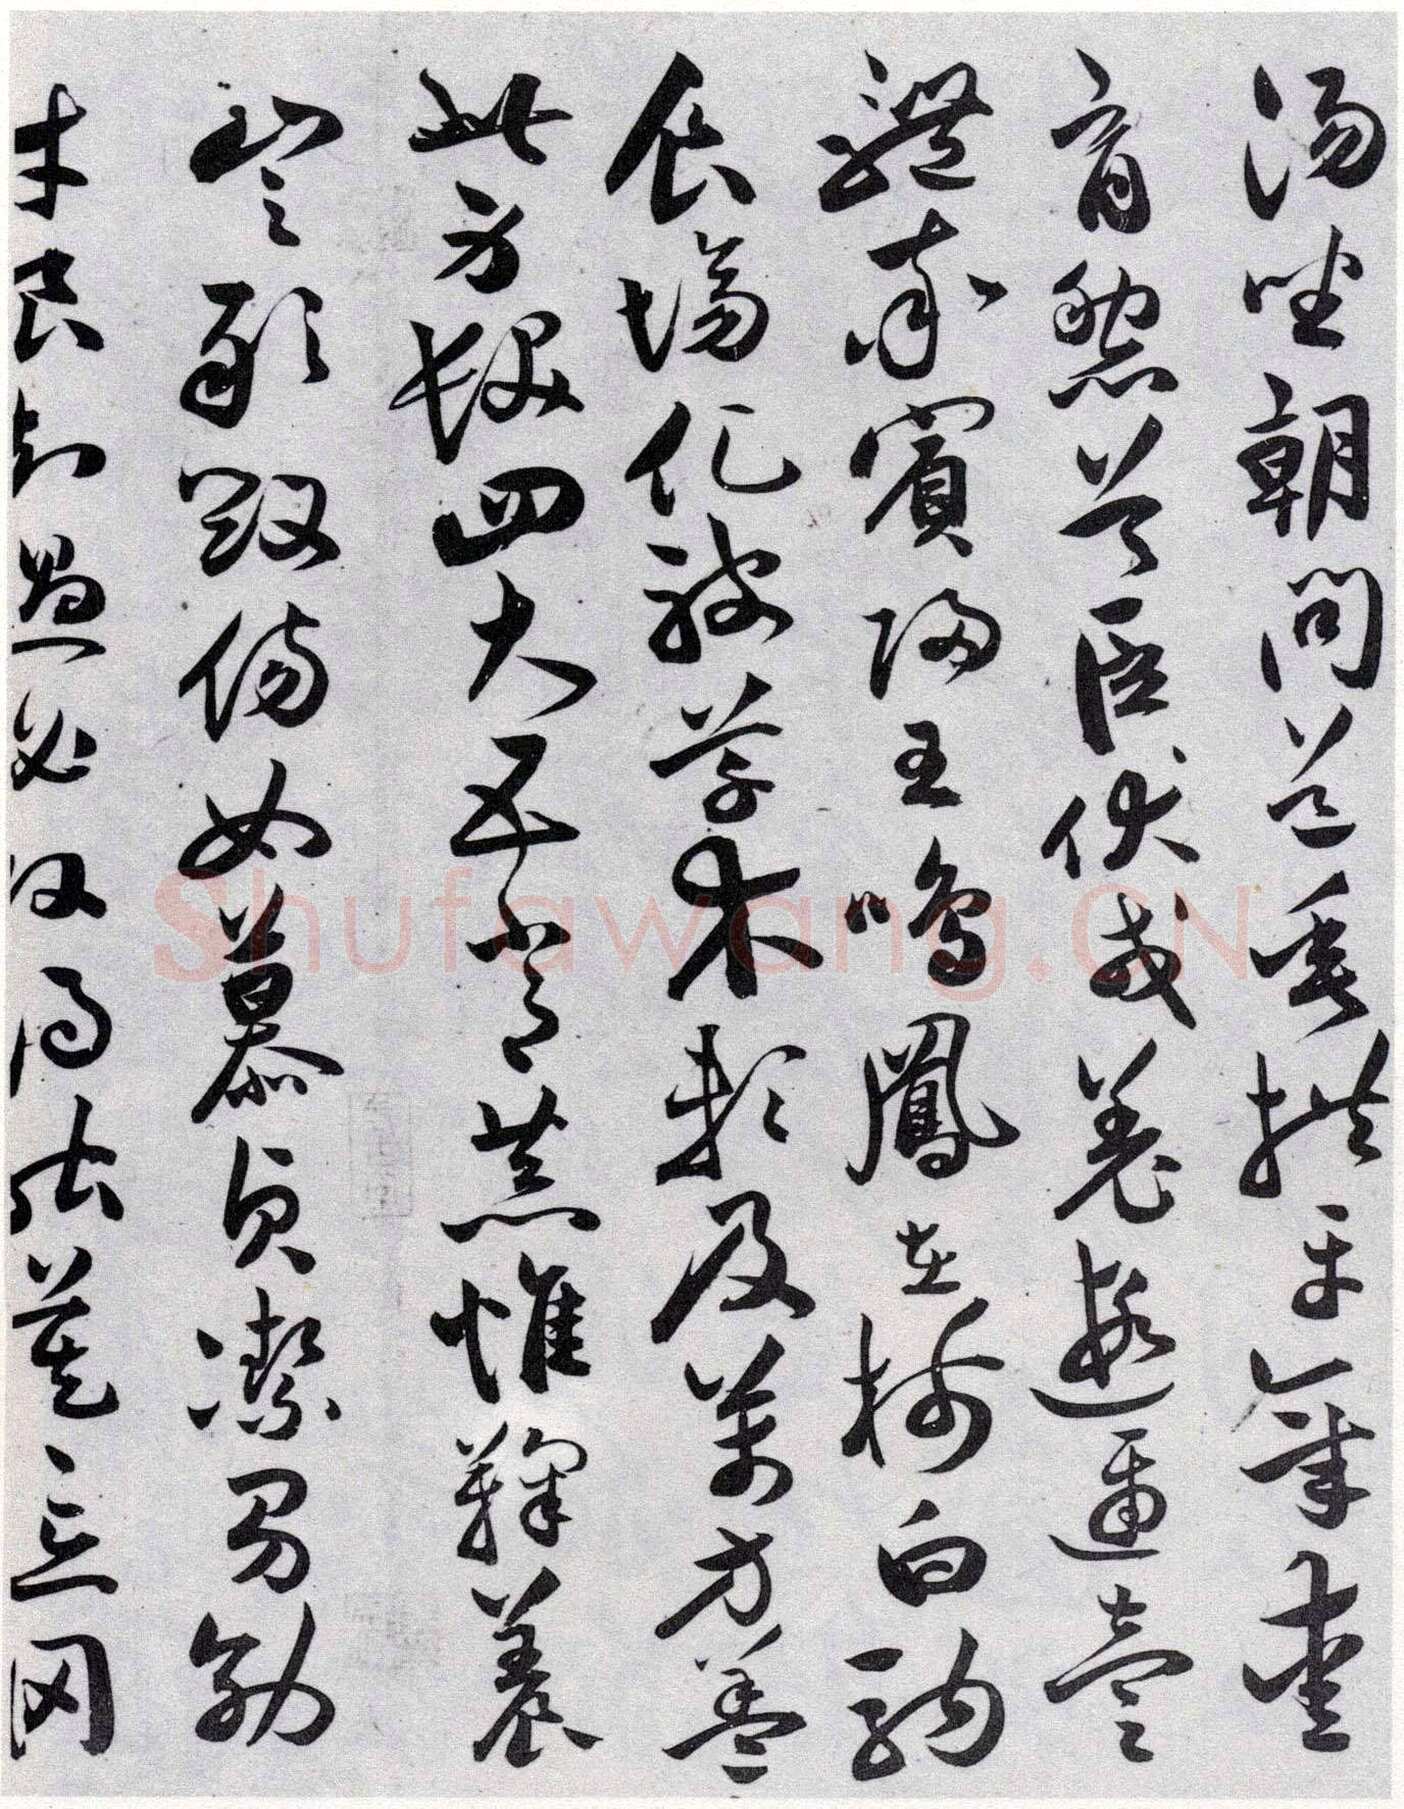 湯坐朝問道垂拱平章愛
育黎首臣伏戎羌遐邇壹
體率賓歸王鳴鳳在樹白駒
食場化被草木賴及萬方蓋
此身髮四大五常恭惟鞠養
豈敢毀傷女慕貞潔男効
才良知過必改得能莫忘罔
Shufawang.CN